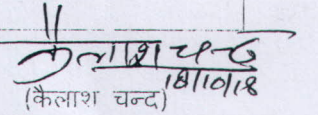 कैलाश चन्द
18/10/18
(कैलाश चन्द)